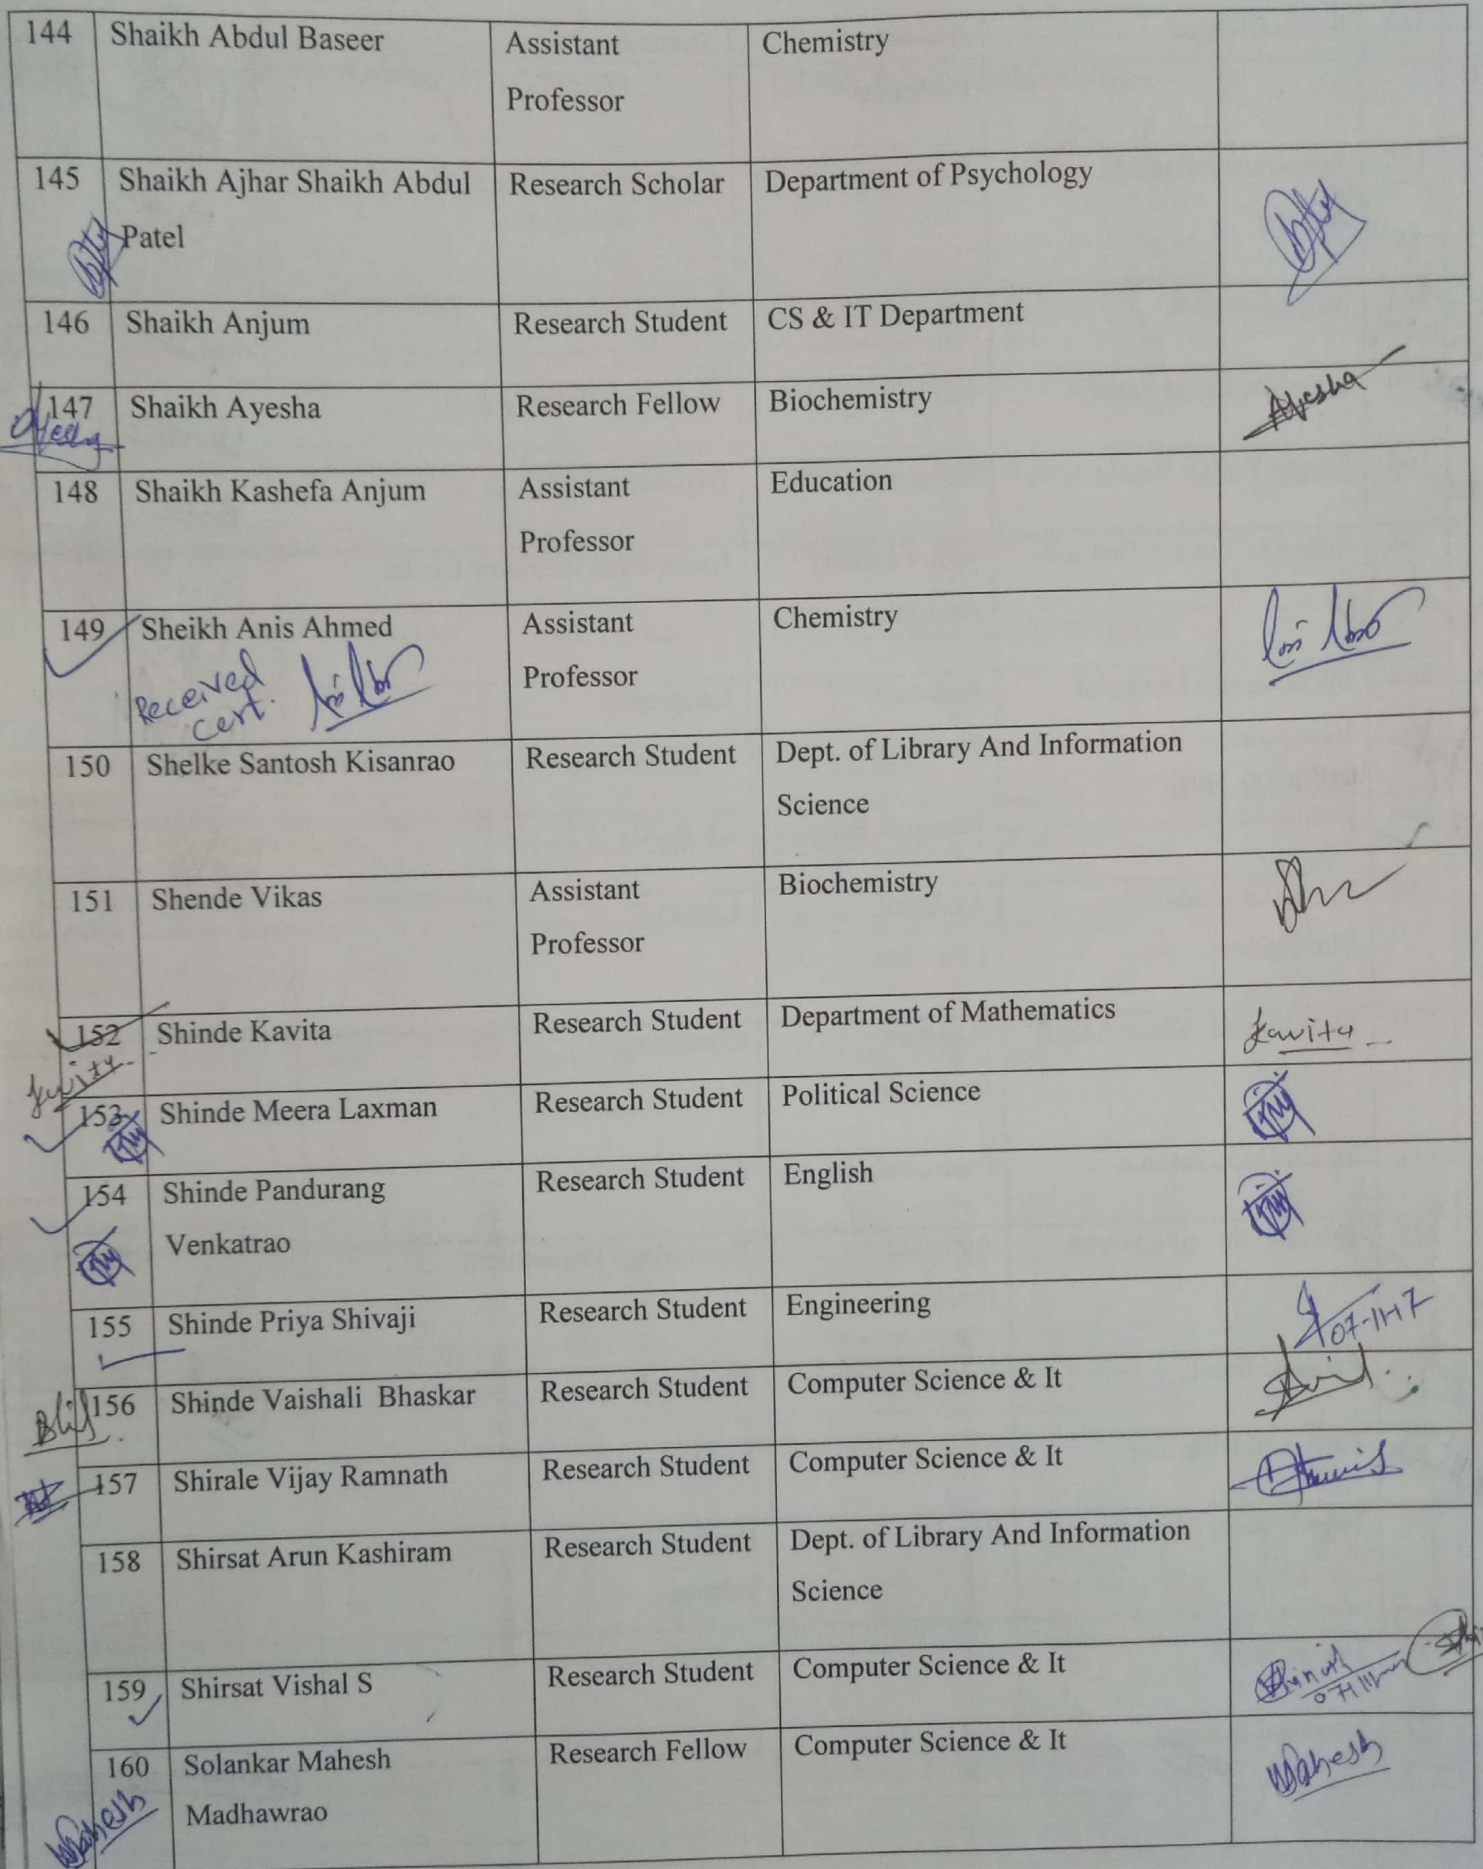 144 Shaikh Abdul Baseer Assistant Chemistry
Professor
145 Shaikh Ajhar Shaikh Abdul Research Scholar Department of Psychology
Patel
146 Shaikh Anjum Research Student CS & IT Department
147 Shaikh Ayesha Research Fellow Biochemistry Ayesha
148 Shaikh Kashefa Anjum Assistant Education
Professor
149 Sheikh Anis Ahmed Assistant Chemistry
Received Professor
cert.
150 Shelke Santosh Kisanrao Research Student Dept. of Library And Information
Science
151 Shende Vikas Assistant Biochemistry
Professor
152 Shinde Kavita Research Student Department of Mathematics Kavita
Kavita
153 Shinde Meera Laxman Research Student Political Science
154 Shinde Pandurang Research Student English
Venkatrao
155 Shinde Priya Shivaji Research Student Engineering
156 Shinde Vaishali Bhaskar Research Student Computer Science & It
157 Shirale Vijay Ramnath Research Student Computer Science & It
158 Shirsat Arun Kashiram Research Student Dept. of Library And Information
Science
159 Shirsat Vishal S Research Student Computer Science & It
160 Solankar Mahesh Research Fellow Computer Science & It Mahesh
Mahesh Madhawrao